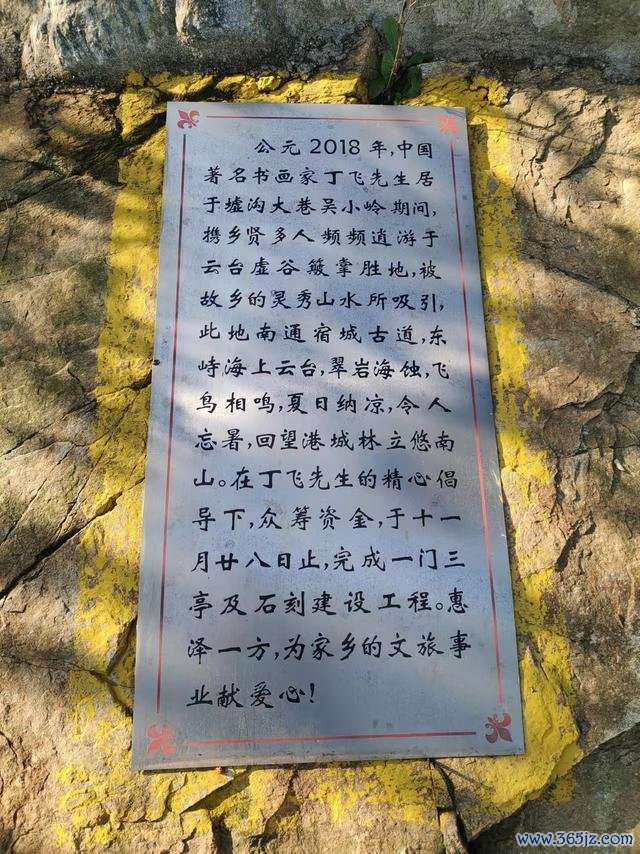 公元2018年,中国
著名书画家丁飞先生居
于墟沟大巷吴小岭期间,
携乡贤多人频频逍游于
云台虚谷簸掌胜地,被
故乡的灵秀山水所吸引,
此地南通宿城古道,东
峙海上云台,翠岩海蚀,飞
鸟相鸣,夏日纳凉,令人
忘暑,回望港城林立悠南
山。在丁飞先生的精心倡
导下,众筹资金,于十一
月廿八日止,完成一门三
亭及石刻建设工程。惠
泽一方,为家乡的文旅事
业献爱心!
www.365jz.com